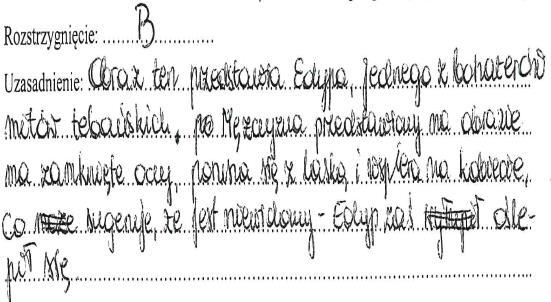 Rozstrzygnięcie: B
Uzasadnienie: Obraz ten przedstawia Edypa, jednego z bohaterów
mitów tebańskich. Mężczyzna przedstawiony na obrazie
ma zamknięte oczy, porusza się z laską i wspiera na kobiecie,
co sugeruje, że jest niewidomy - Edyp zaś ośle-
pił się